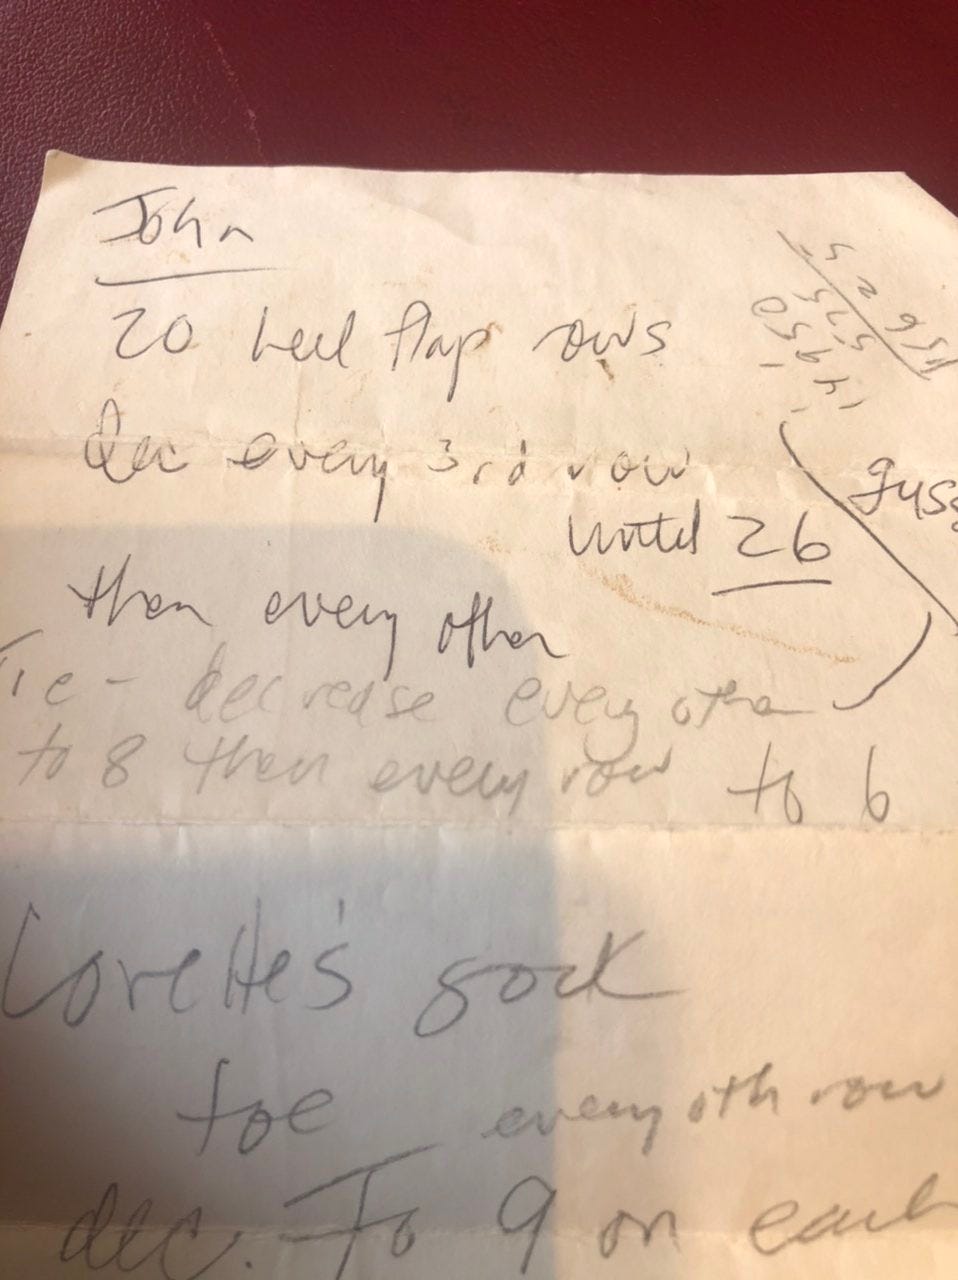 John
20 heel flap rows
dec every 3rd row
until 26
guss
then every other
ie - decrease every other
to 8 then every row to 6
Lorette's sock
toe every oth row
dec. To 9 on each